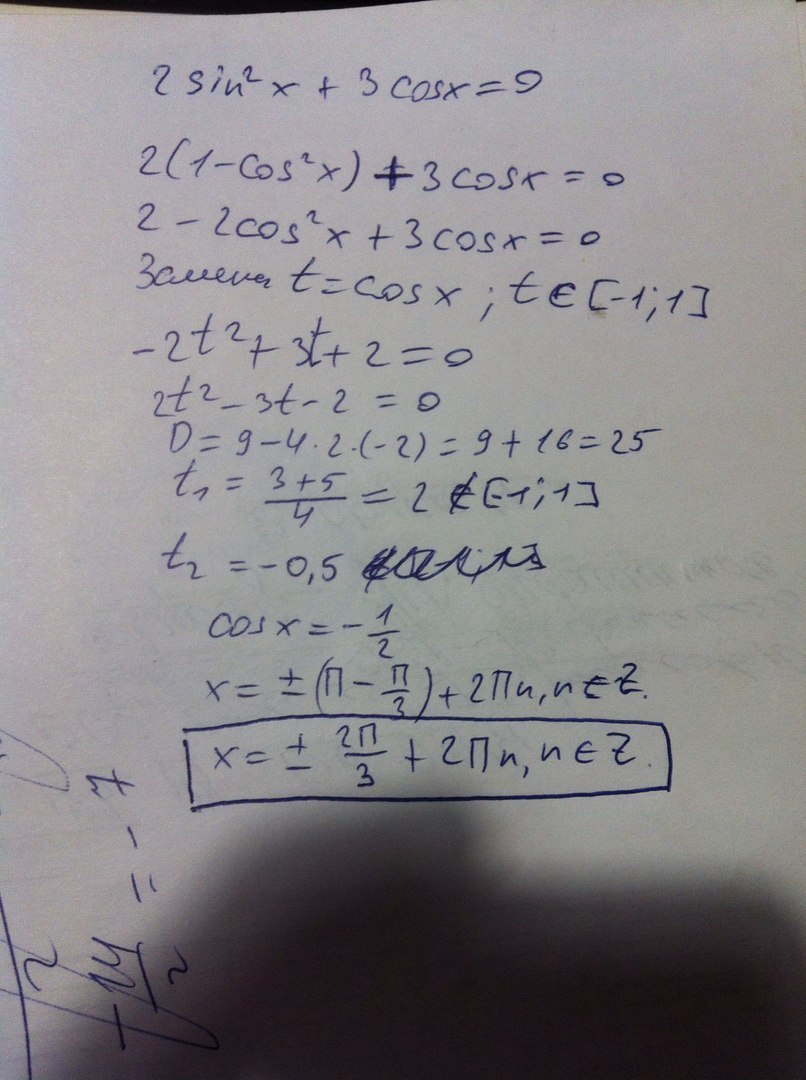 2 sin²x + 3 cosx = 0
2(1-cos²x) + 3cosx = 0
2 - 2cos²x + 3cosx = 0
Замена t = cosx ; t ∈ [-1;1]
-2t² + 3t + 2 = 0
2t² - 3t - 2 = 0
D = 9 - 4·2·(-2) = 9 + 16 = 25
t₁ = (3+5)/4 = 2 ∉ [-1;1]
t₂ = -0,5
cosx = -1/2
x = ±(π - π/3) + 2πn, n ∈ Z.
x = ± 2π/3 + 2πn, n ∈ Z.